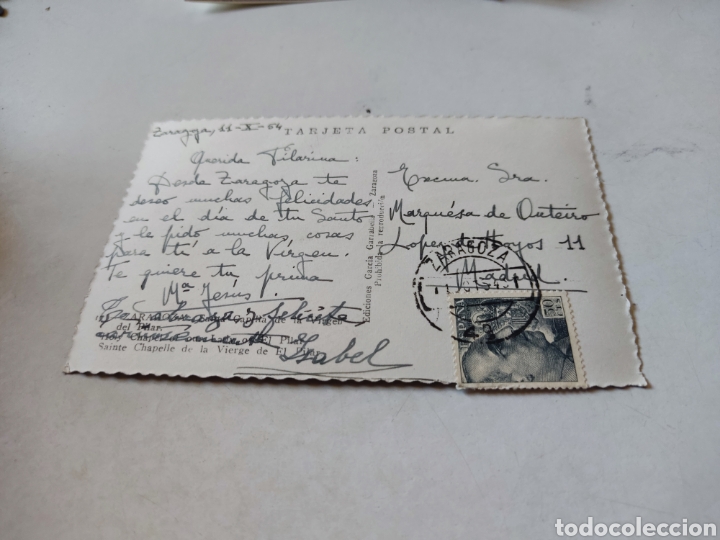 Zaragoza, 11-X-54
TARJETA POSTAL
Querida Pilarina:
Desde Zaragoza te
deseo muchas felicidades
en el día de tu Santo
y le pido muchas cosas
para tí a la Vírgen.
Te quiere tu prima
Mª Jesús.
Te abraza y felicita,
Isabel
de la Virgen
del Pilar
Sainte Chapelle de la Vierge de El Pilar
Ediciones García Garrabella - Zaragoza
Prohibida la reproducción
Excma. Sra.
Marquésa de Outeiro
Lope de Hoyos 11
Madrid.
ZARAGOZA
todocoleccion